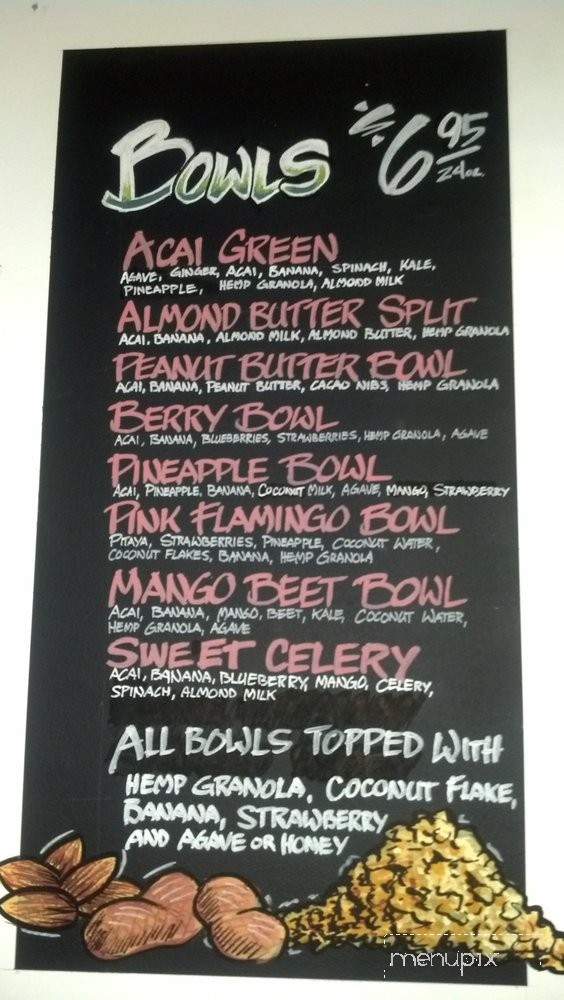 BOWLS
$6 95
24oz.
ACAI GREEN
AGAVE, GINGER, ACAI, BANANA, SPINACH, KALE,
PINEAPPLE, HEMP GRANOLA, ALMOND MILK
ALMOND BUTTER SPLIT
ACAI, BANANA, ALMOND MILK, ALMOND BUTTER, HEMP GRANOLA
PEANUT BUTTER BOWL
ACAI, BANANA, PEANUT BUTTER, CACAO NIBS, HEMP GRANOLA
BERRY BOWL
ACAI, BANANA, BLUEBERRIES, STRAWBERRIES, HEMP GRANOLA, AGAVE
PINEAPPLE BOWL
ACAI, PINEAPPLE, BANANA, COCONUT MILK, AGAVE, MANGO, STRAWBERRY
PINK FLAMINGO BOWL
PITAYA, STRAWBERRIES, PINEAPPLE, COCONUT WATER,
COCONUT FLAKES, BANANA, HEMP GRANOLA
MANGO BEET BOWL
ACAI, BANANA, MANGO, BEET, KALE, COCONUT WATER,
HEMP GRANOLA, AGAVE
SWEET CELERY
ACAI, BANANA, BLUEBERRY, MANGO, CELERY,
SPINACH, ALMOND MILK
ALL BOWLS TOPPED WITH
HEMP GRANOLA, COCONUT FLAKE,
BANANA, STRAWBERRY
AND AGAVE OR HONEY
menupix